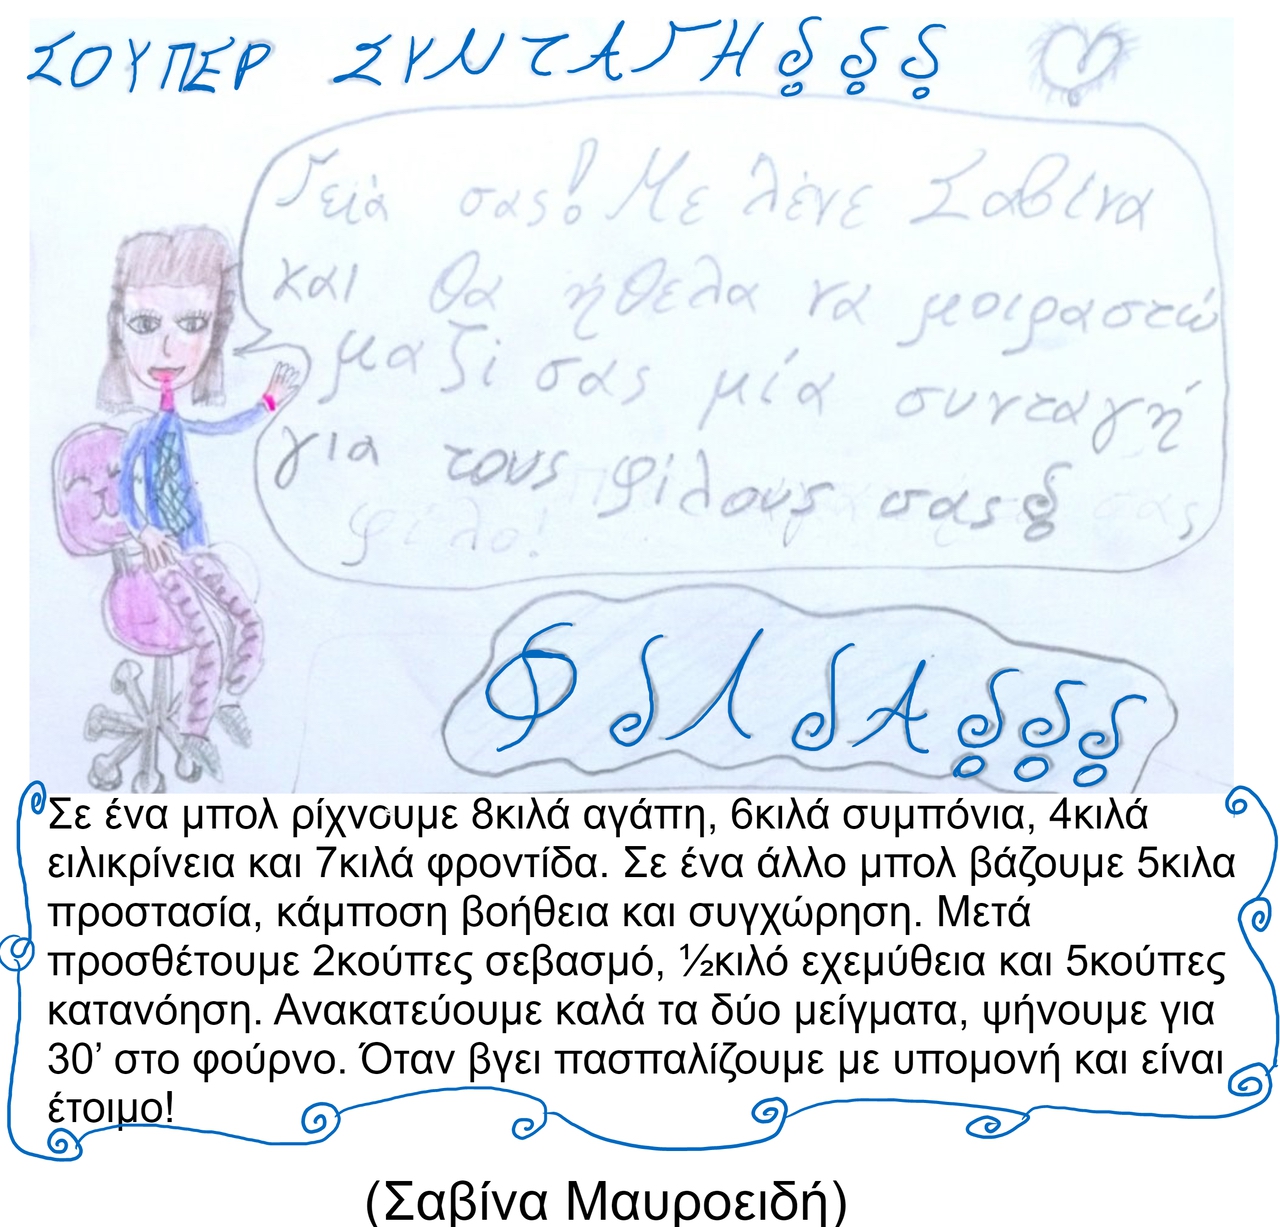 ΣΟΥΠΕΡ ΣΥΝΤΑΓΗ!!!
Γειά σας! Με λένε Σαβίνα
και θα ήθελα να μοιραστώ
μαζί σας μία συνταγή
για τους φίλους σας!
ΦΙΛΙΑ!!!
Σε ένα μπολ ρίχνουμε 8κιλά αγάπη, 6κιλά συμπόνια, 4κιλά
ειλικρίνεια και 7κιλά φροντίδα. Σε ένα άλλο μπολ βάζουμε 5κιλα
προστασία, κάμποση βοήθεια και συγχώρηση. Μετά
προσθέτουμε 2κούπες σεβασμό, ½κιλό εχεμύθεια και 5κούπες
κατανόηση. Ανακατεύουμε καλά τα δύο μείγματα, ψήνουμε για
30’ στο φούρνο. Όταν βγει πασπαλίζουμε με υπομονή και είναι
έτοιμο!
(Σαβίνα Μαυροειδή)